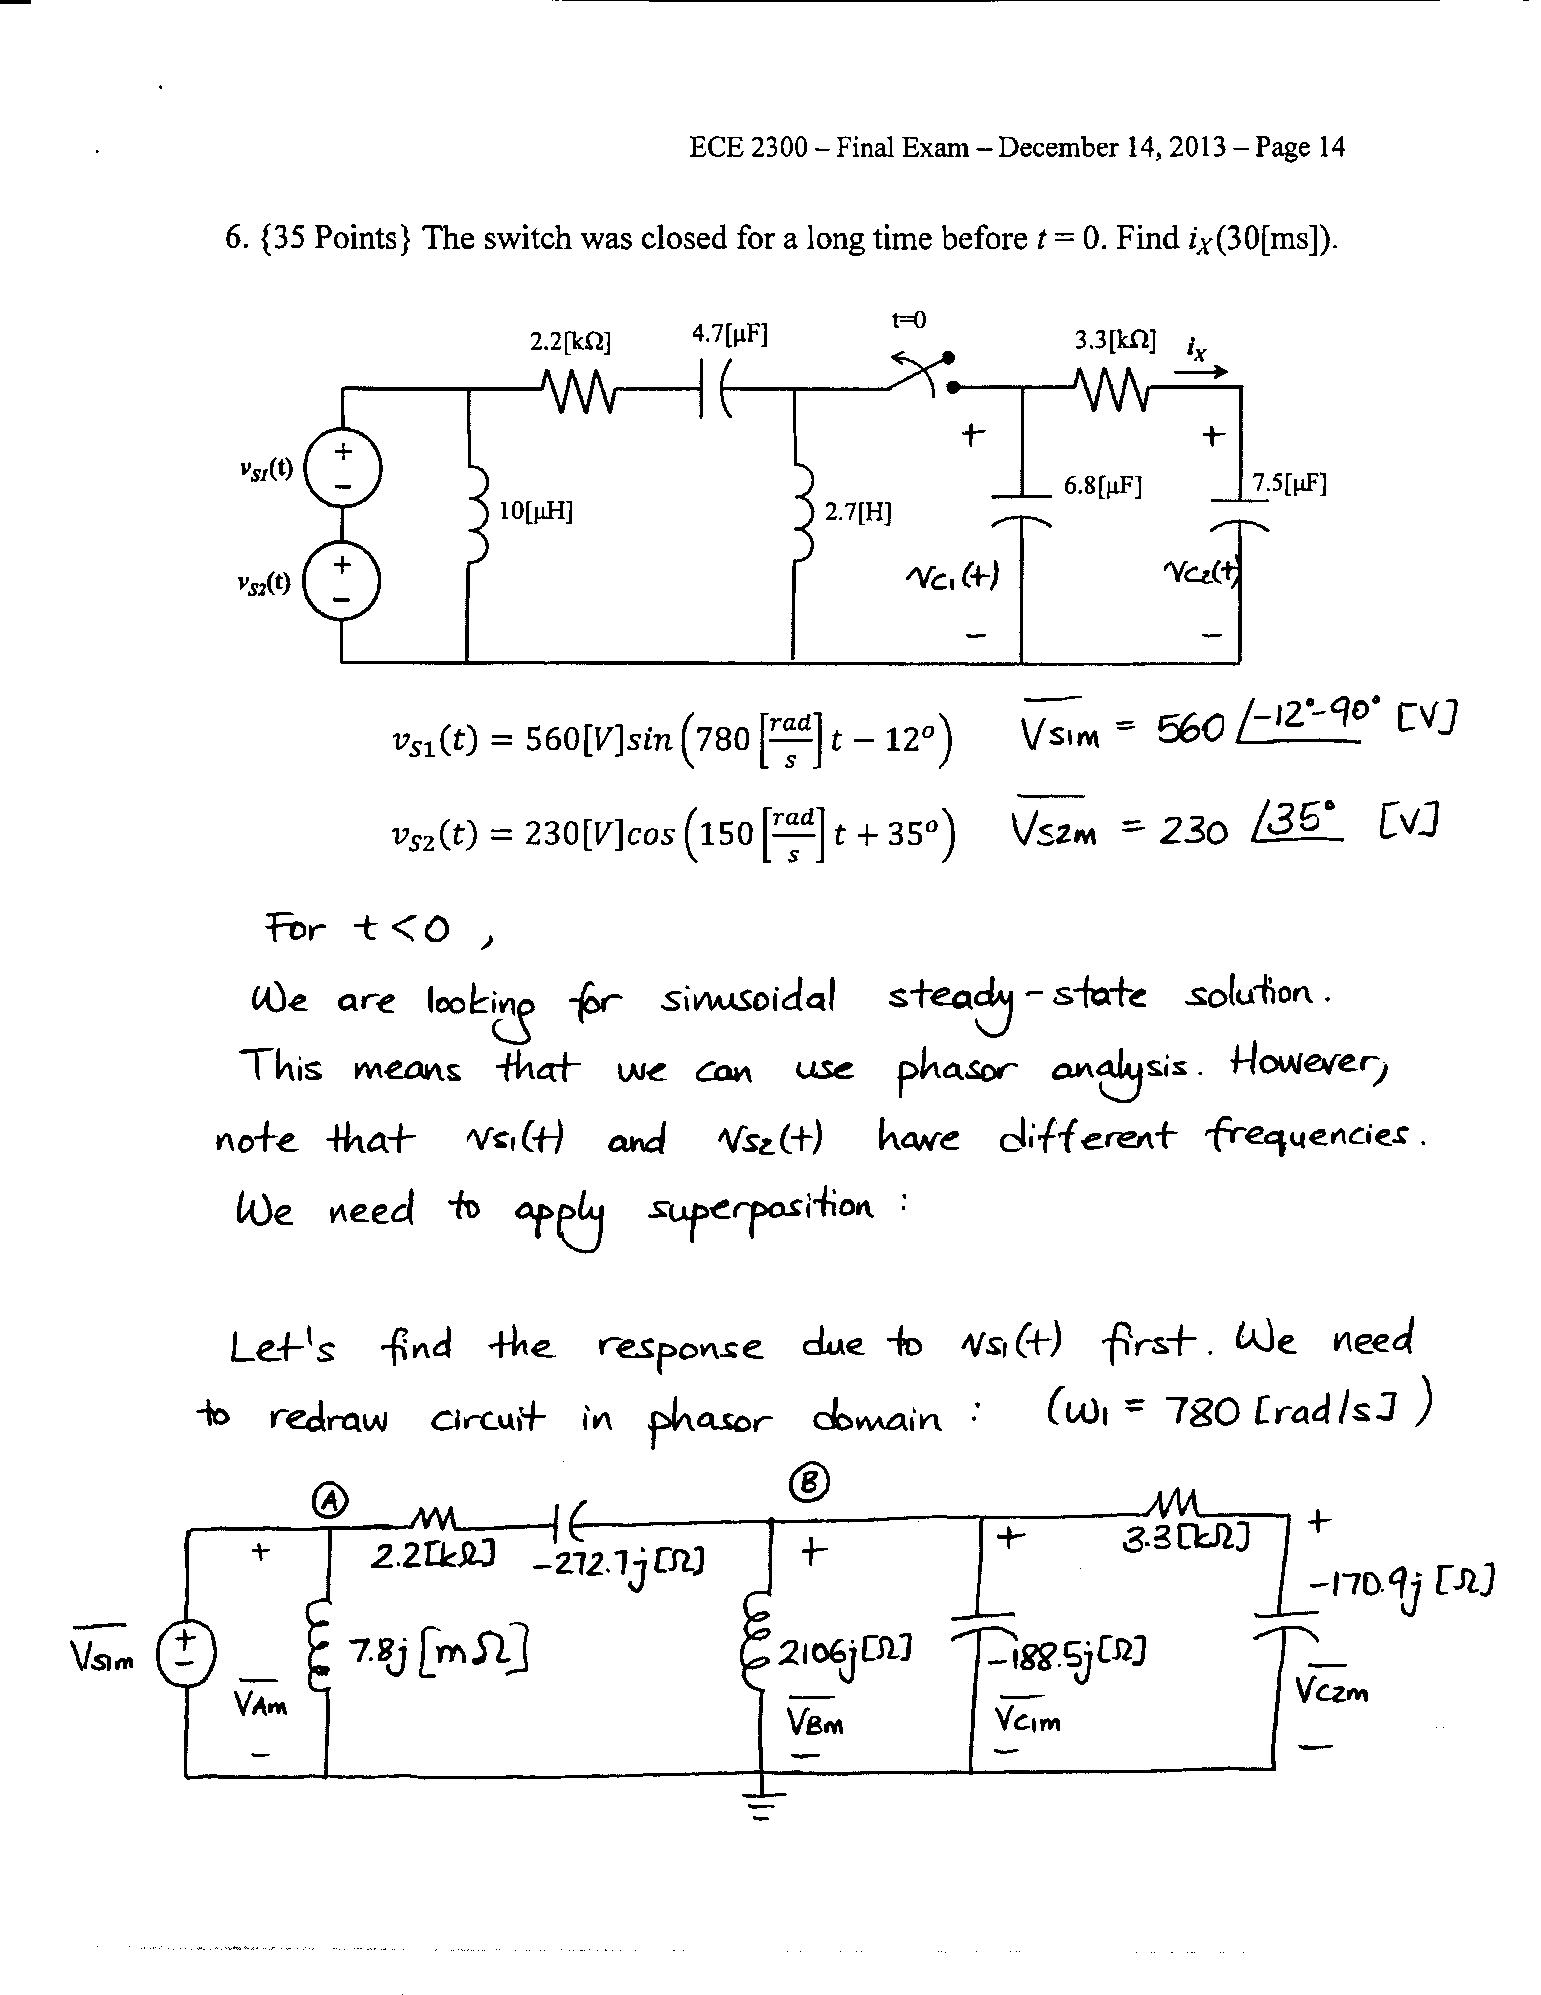 ECE 2300 – Final Exam – December 14, 2013 – Page 14
6. {35 Points} The switch was closed for a long time before t = 0. Find iX(30[ms]).
t=0
2.2[kΩ] 4.7[μF] 3.3[kΩ] iX
+ +
vS1(t) + − 10[μH] 2.7[H] 6.8[μF] 7.5[μF]
vS2(t) + − vC1(t) vC2(t)
− −
vS1(t) = 560[V]sin(780[rad/s]t − 12°) VS1m = 560 /-12°-90° [V]
vS2(t) = 230[V]cos(150[rad/s]t + 35°) VS2m = 230 /35° [V]
For t < 0 ,
We are looking for sinusoidal steady-state solution.
This means that we can use phasor analysis. However,
note that vS1(t) and vS2(t) have different frequencies.
We need to apply superposition :
Let's find the response due to vS1(t) first. We need
to redraw circuit in phasor domain : (ω1 = 780 [rad/s])
A B
2.2[kΩ] -272.7j[Ω] 3.3[kΩ]
+ + + +
-170.9j [Ω]
VS1m + − 7.8j [mΩ] 2106j[Ω] -188.5j[Ω]
VAm VBm VC1m VC2m
− − − −